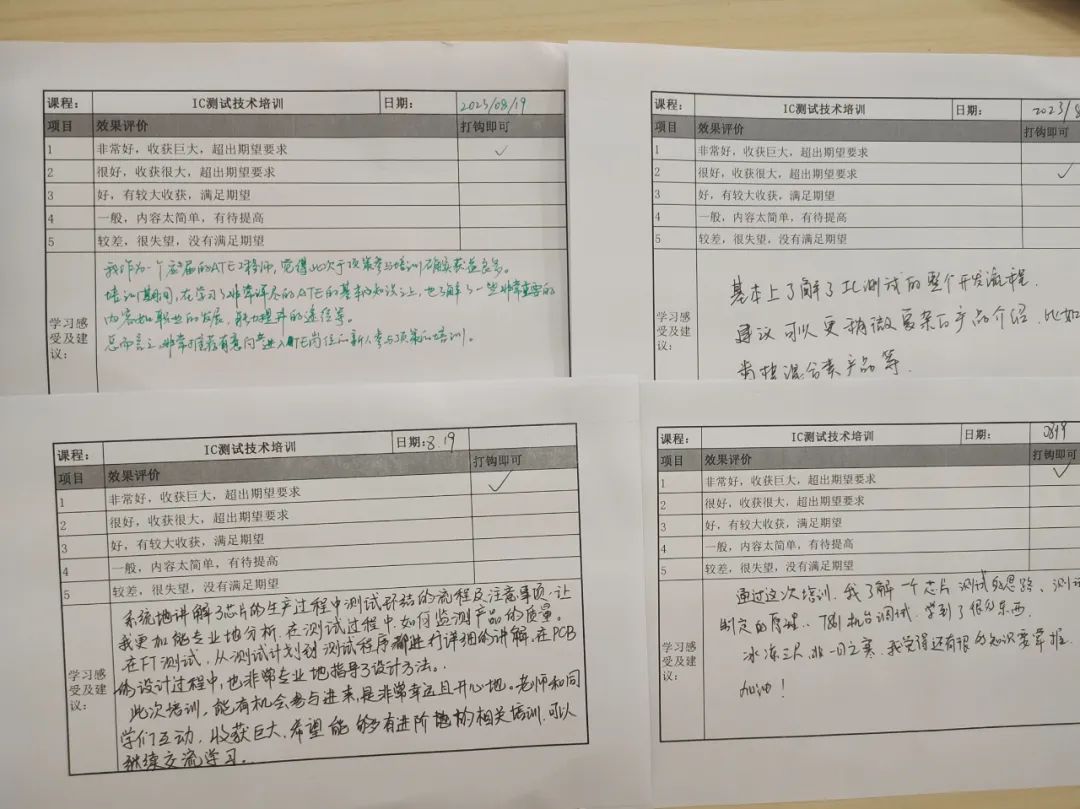 课程： IC测试技术培训 日期： 2023/08/19
项目 效果评价 打钩即可
1 非常好，收获巨大，超出期望要求 ✓
2 很好，收获很大，超出期望要求
3 好，有较大收获，满足期望
4 一般，内容太简单，有待提高
5 较差，很失望，没有满足期望
学习感受及建议：
我作为一个应届的ATE工程师，觉得此次于顶策参与培训确实获益良多。
培训期间，在学习了非常详尽的ATE的基本知识之上，也了解了一些非常重要的
内容如职业的发展，能力提升的途径等。
总而言之，非常推荐有意向进入ATE岗位的新人参与顶策的培训。
课程： IC测试技术培训 日期： 2023/8
项目 效果评价 打钩即可
1 非常好，收获巨大，超出期望要求
2 很好，收获很大，超出期望要求 ✓
3 好，有较大收获，满足期望
4 一般，内容太简单，有待提高
5 较差，很失望，没有满足期望
学习感受及建议：
基本上了解了IC测试的整个开发流程.
建议可以更稍微复杂的产品介绍，比如
类产品等.
课程： IC测试技术培训 日期：8.19
项目 效果评价 打钩即可
1 非常好，收获巨大，超出期望要求 ✓
2 很好，收获很大，超出期望要求
3 好，有较大收获，满足期望
4 一般，内容太简单，有待提高
5 较差，很失望，没有满足期望
学习感受及建议：
系统地讲解了芯片的生产过程中测试环结的流程及注意事项.让
我更加能专业地分析.在测试过程中.如何监测产品的质量。
在FT测试，从测试计划到测试程序都进行详细的讲解.在PCB
的设计过程中，也非常专业地指导了设计方法。.
此次培训，能有机会参与进来，是非常幸运且开心地。老师和同
学们互动，收获巨大，希望能够有进阶的相关培训.可以
继续交流学习。
课程： IC测试技术培训 日期： 0819
项目 效果评价 打钩即可
1 非常好，收获巨大，超出期望要求 ✓
2 很好，收获很大，超出期望要求
3 好，有较大收获，满足期望
4 一般，内容太简单，有待提高
5 较差，很失望，没有满足期望
学习感受及建议：
通过这次培训.我了解一个芯片测试的思路、测试
制定的原理、机台调试.学到了很多东西.
冰冻三尺，非一日之寒.我觉得还有很多知识要掌握.
加油！